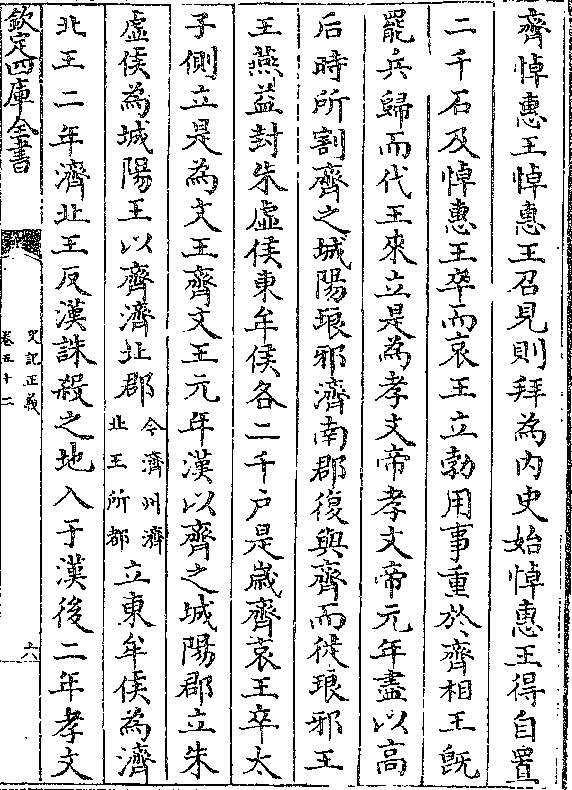 齊悼惠王悼惠王召見則拜為內史始悼惠王得自置
二千石及悼惠王卒而哀王立勃用事重於齊相王既
罷兵歸而代王來立是為孝文帝孝文帝元年盡以高
后時所割齊之城陽琅邪濟南郡復與齊而徙琅邪王
王燕益封朱虛侯東牟侯各二千户是歲齊哀王卒太
子側立是為文王齊文王元年漢以齊之城陽郡立朱
虛侯為城陽王以齊濟北郡今濟州濟北王所都立東牟侯為濟
北王二年濟北王反漢誅殺之地入于漢後二年孝文
欽定四庫全書
史記正義
卷五十二
六